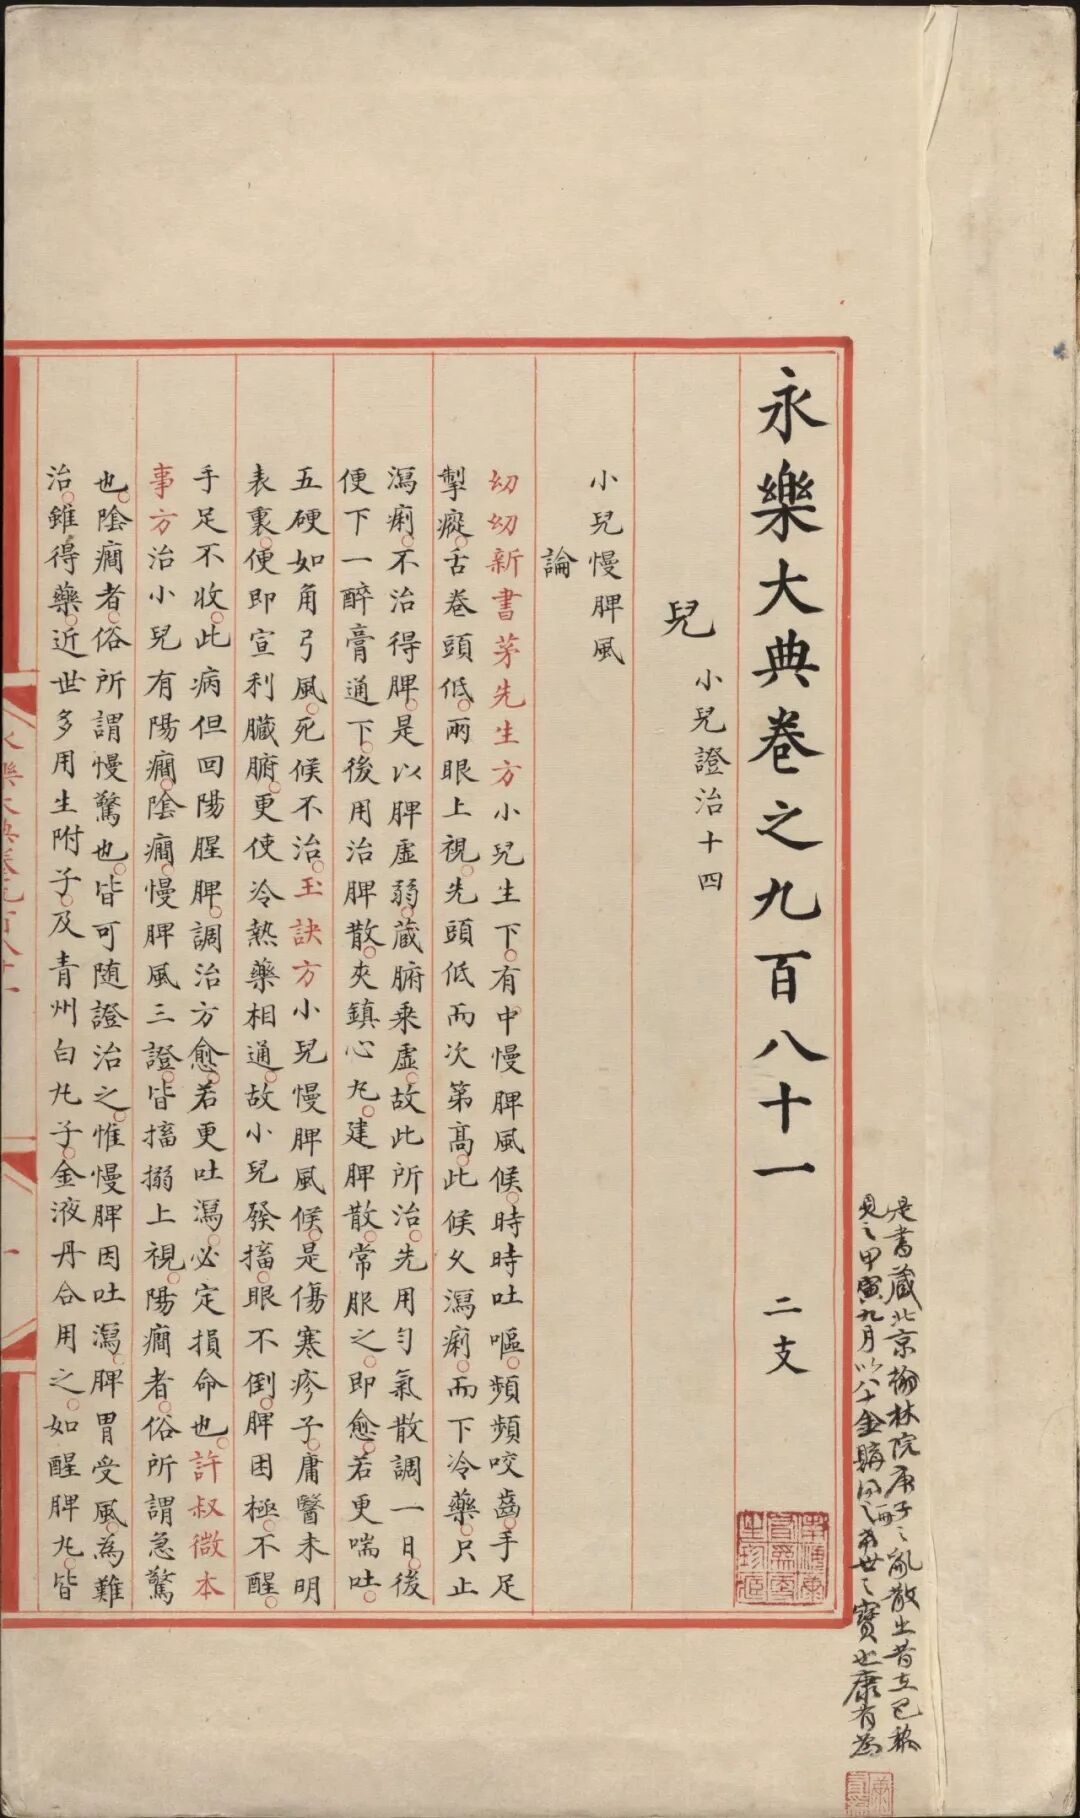 是書藏北京翰林院庚子之亂散出昔在巴黎
見之甲寅九月以八十金購希世之寶也康有為
永樂大典卷之九百八十一 二支
兒 小兒證治十四
小兒慢脾風
論
幼幼新書茅先生方小兒生下。有中慢脾風候。時時吐嘔。頻頻咬齒。手足
掣瘲。舌卷頭低。兩眼上視。先頭低而次第高。此候乆瀉痢。而下冷藥。只止
瀉痢。不治得脾。是以脾虛弱。藏腑乘虛。故此所治。先用勻氣散調一日。後
便下一醉膏通下。後用治脾散。夾鎮心丸。建脾散。常服之。即愈。若更喘吐。
五硬如角弓風。死候不治。玉訣方小兒慢脾風候。是傷寒疹子。庸醫未明
表裏。便即宣利臟腑。更使冷熱藥相通。故小兒發搐。眼不倒。脾困極。不醒。
手足不收。此病但回陽腥脾。調治方愈。若更吐瀉。必定損命也。許叔微本
事方治小兒有陽癎。陰癎。慢脾風三證。皆搐搦上視。陽癎者。俗所謂急驚
也。陰癎者。俗所謂慢驚也。皆可随證治之。惟慢脾因吐瀉。脾胃受風。為難
治。雖得藥。近世多用生附子。及青州白丸子。金液丹合用之。如醒脾丸。皆